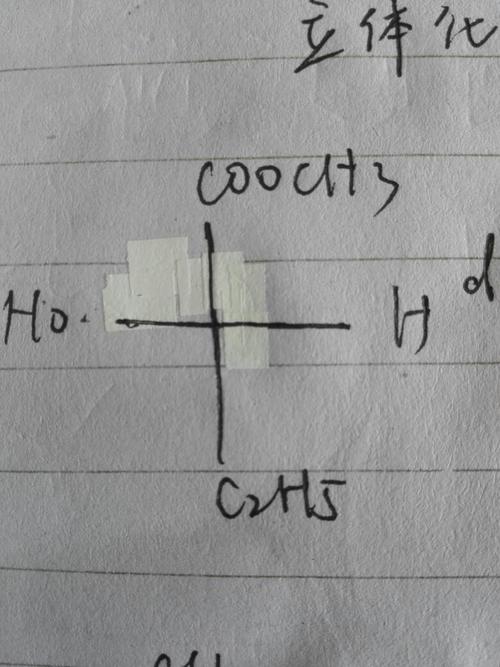 立体化
COOCH3
HO. H d
C2H5